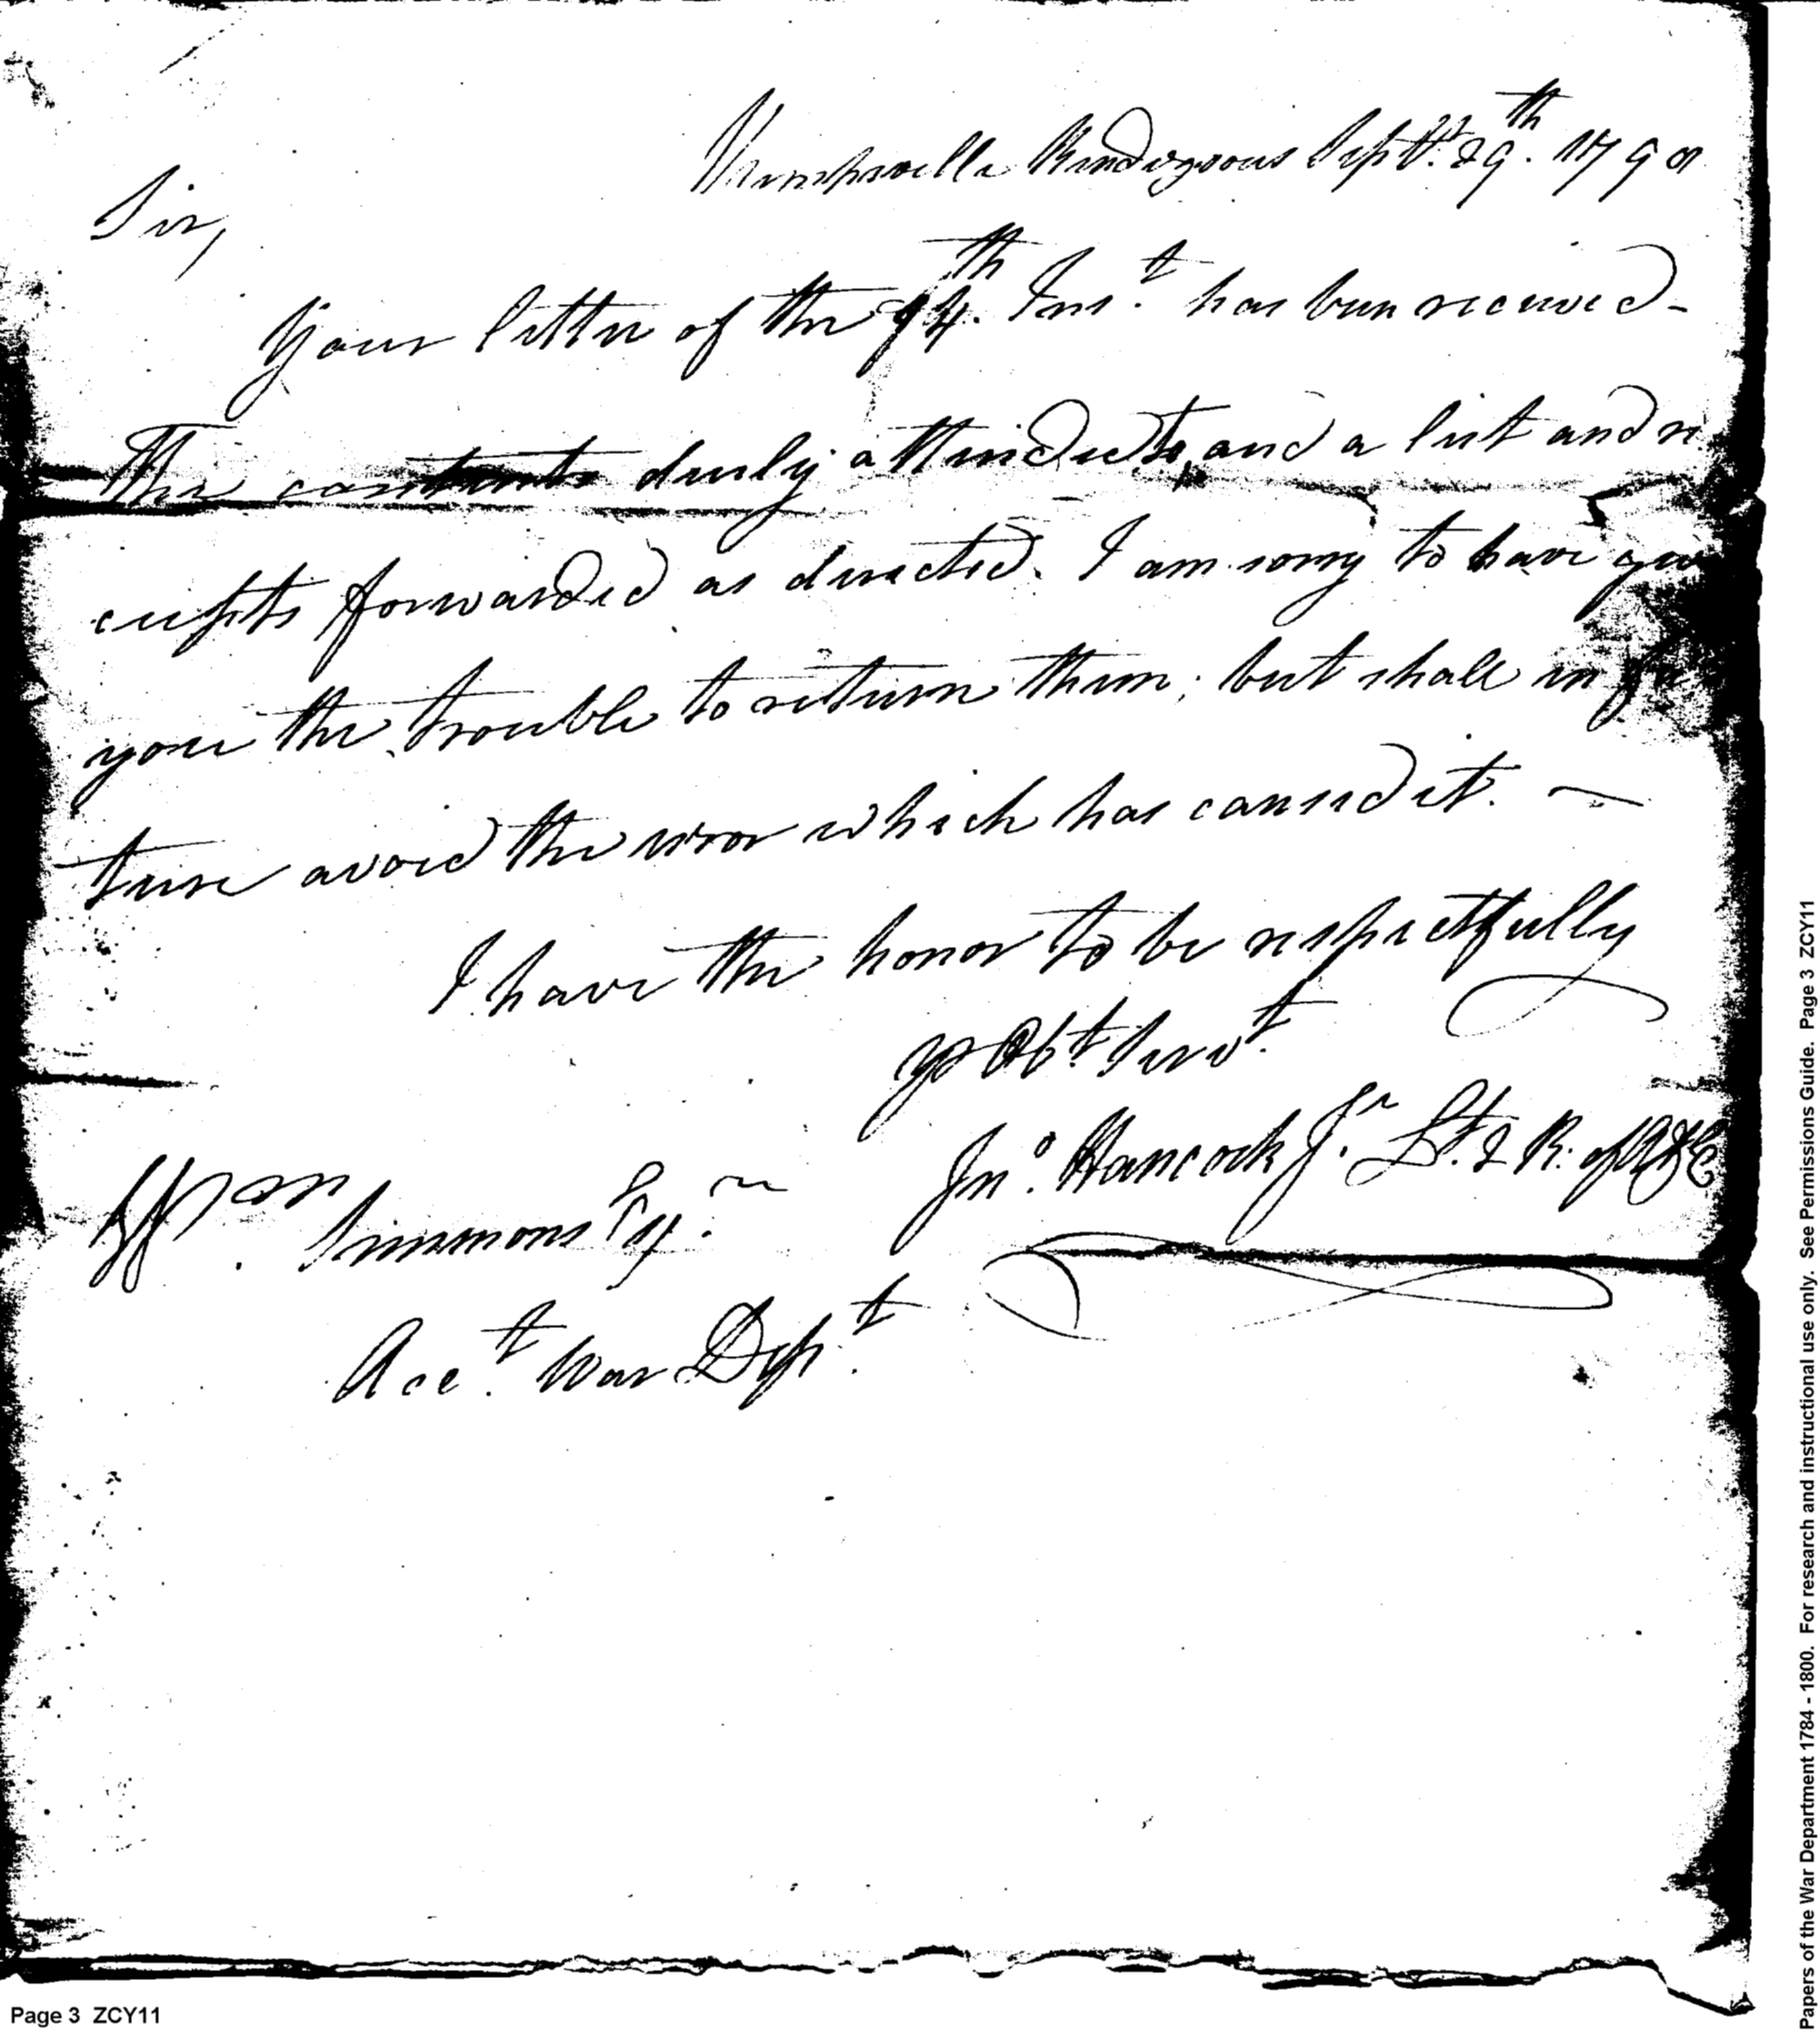 Rendezvous Sept.^r 29.^th 179
Sir,
Your letter of the 14.^th Ins.^t has been received -
The contents duely attended to, and a list and re
ceipts forwarded as directed. I am sorry to have
you the trouble to return them; but shall in fu
ture avoid the error which has caused it. —
I have the honor to be respectfully
yr Ob.^t Serv.^t
Jn.^o Hancock J.^r L.^t & R. of
W.^m Simmons Esq.^r
Acc.^t War Dep.^t
Page 3 ZCY11
Papers of the War Department 1784 - 1800. For research and instructional use only. See Permissions Guide. Page 3 ZCY11